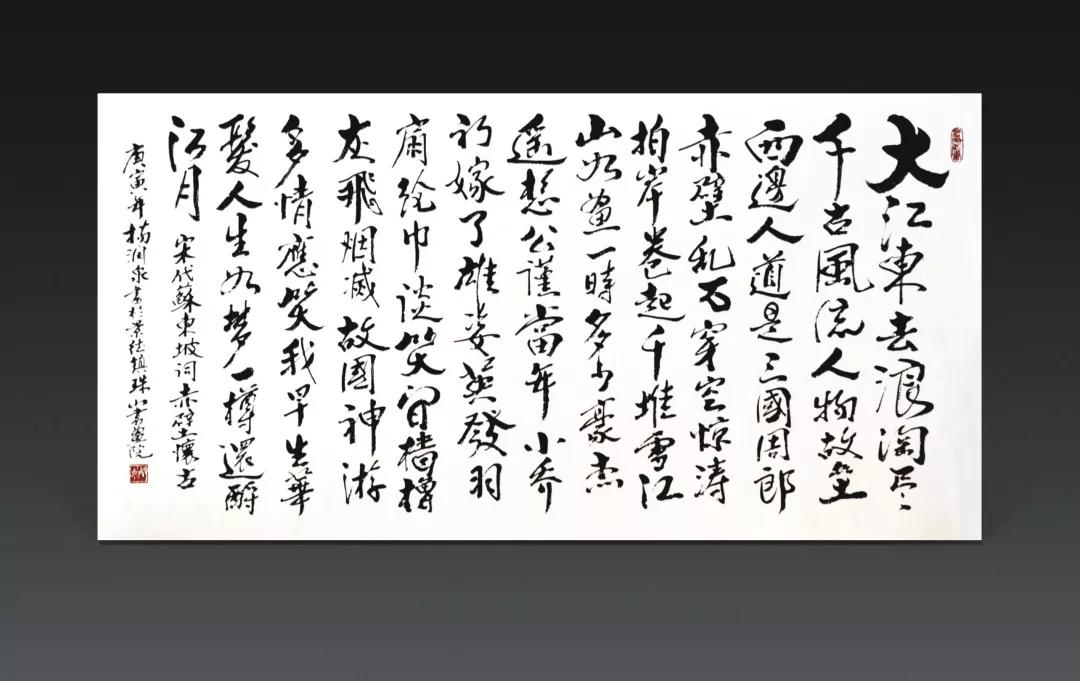 大江東去浪淘尽
千古風流人物故垒
西邊人道是三國周郎
赤壁乱石穿空惊涛
拍岸卷起千堆雪江
山如畫一時多少豪杰
遥想公瑾當年小乔
初嫁了雄姿英發羽
扇纶巾談笑间樯櫓
灰飛烟滅故國神游
多情應笑我早生華
髮人生如梦一樽還酹
江月 宋代蘇東坡词赤壁懷古
庚寅年杨润泉書於景德镇珠山書畫院